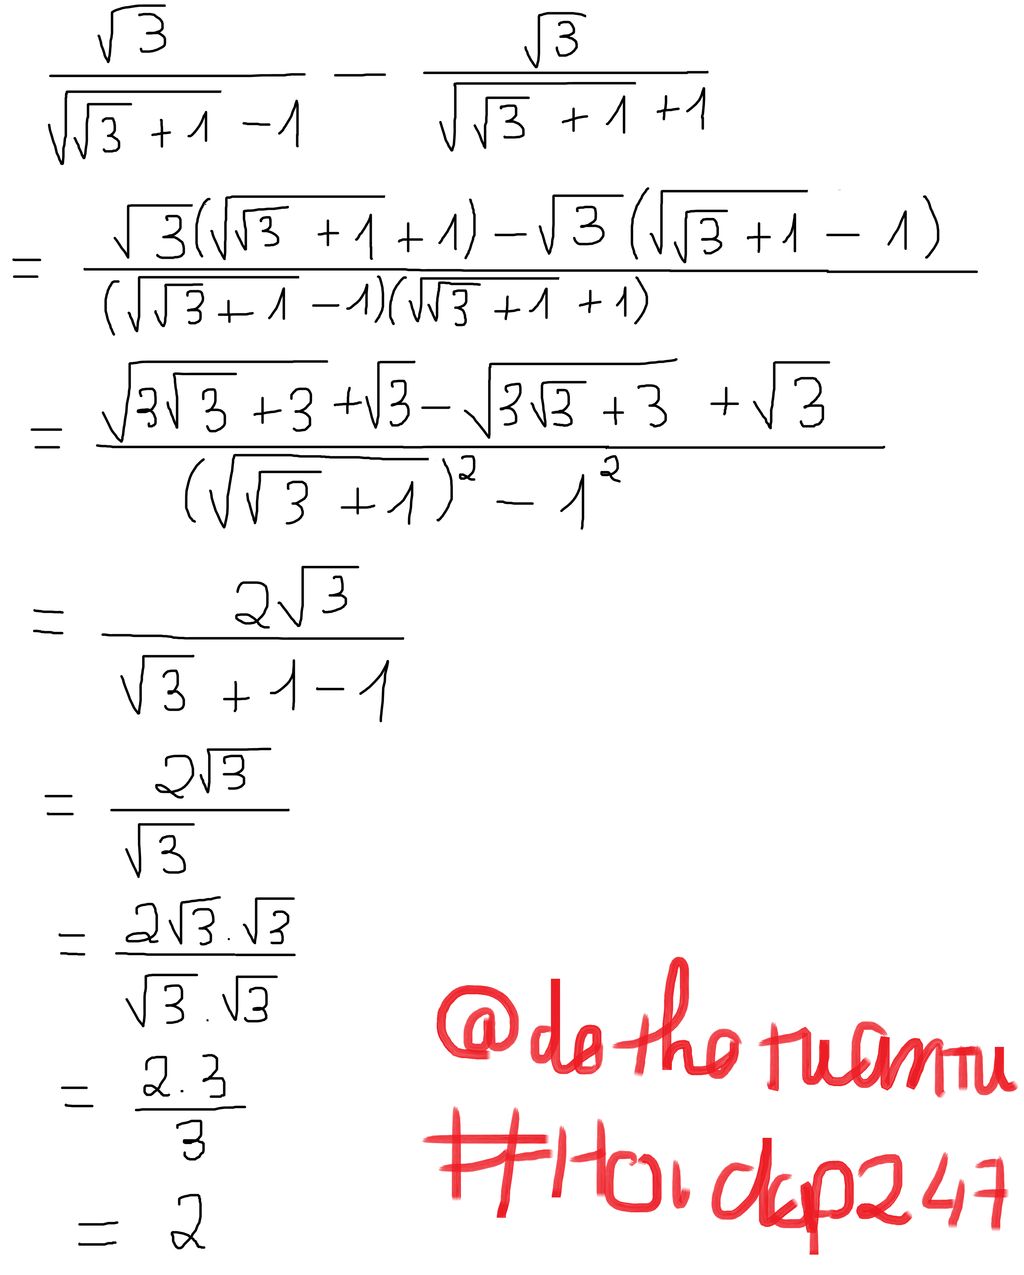 √3/(√(√3 + 1) - 1) - √3/(√(√3 + 1) + 1)
= (√3(√(√3 + 1) + 1) - √3(√(√3 + 1) - 1))/((√(√3 + 1) - 1)(√(√3 + 1) + 1))
= (√(3√3 + 3) + √3 - √(3√3 + 3) + √3)/((√(√3 + 1))² - 1²)
= 2√3/(√3 + 1 - 1)
= 2√3/√3
= (2√3 . √3)/(√3 . √3)
= (2 . 3)/3
= 2
@dothotuantu
#Hoidap247